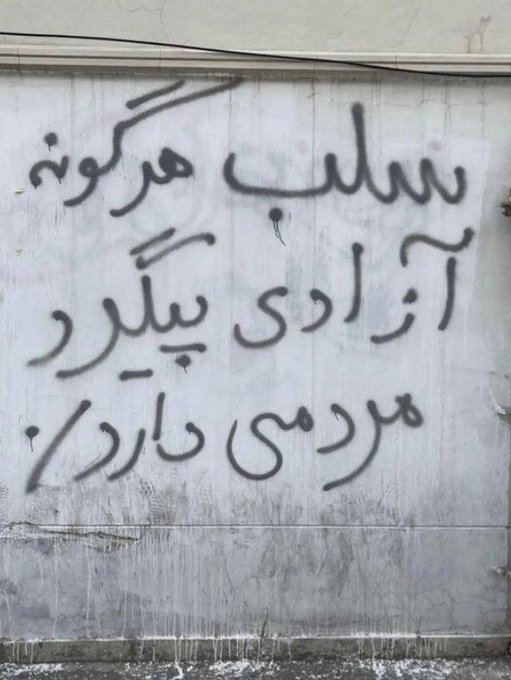 سلب هرگونه
آزادی پیگرد
مردمی دارد/.